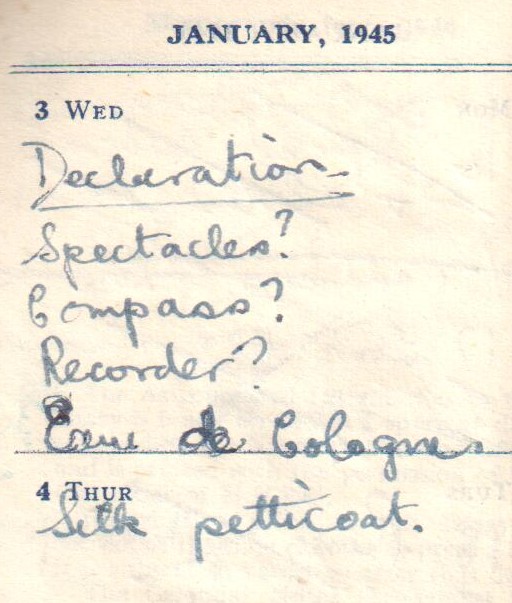 JANUARY, 1945
3 WED
Declaration
Spectacles?
Compass?
Recorder?
Eau de Cologne.
4 THUR
Silk petticoat.